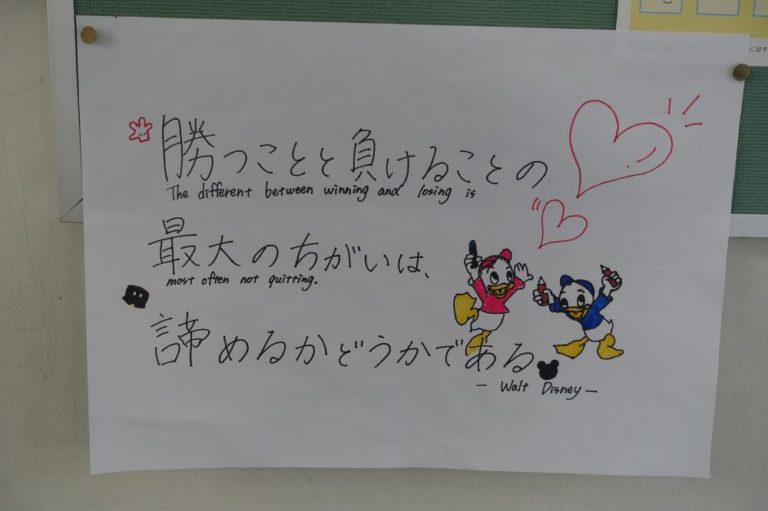 勝つことと負けることの
The different between winning and losing is
最大のちがいは、
most often not quitting.
諦めるかどうかである。
— Walt Disney —